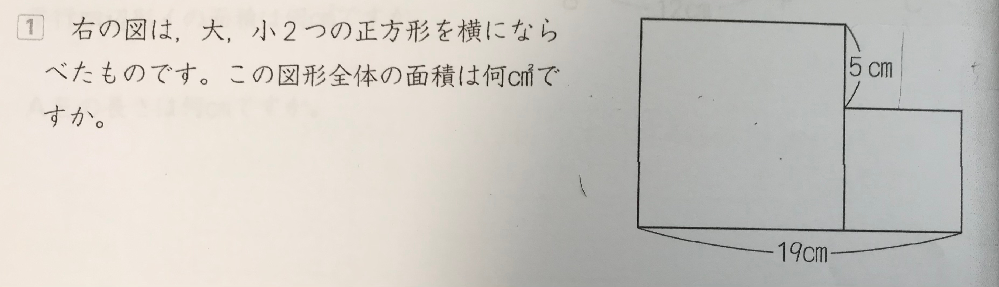 1 右の図は，大，小２つの正方形を横になら
べたものです。この図形全体の面積は何㎠で
すか。
5cm
19cm
12cm